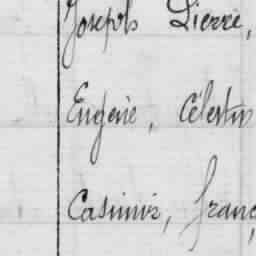 Joseph Pierre,
Eugène, Célestin
Casimir, franç